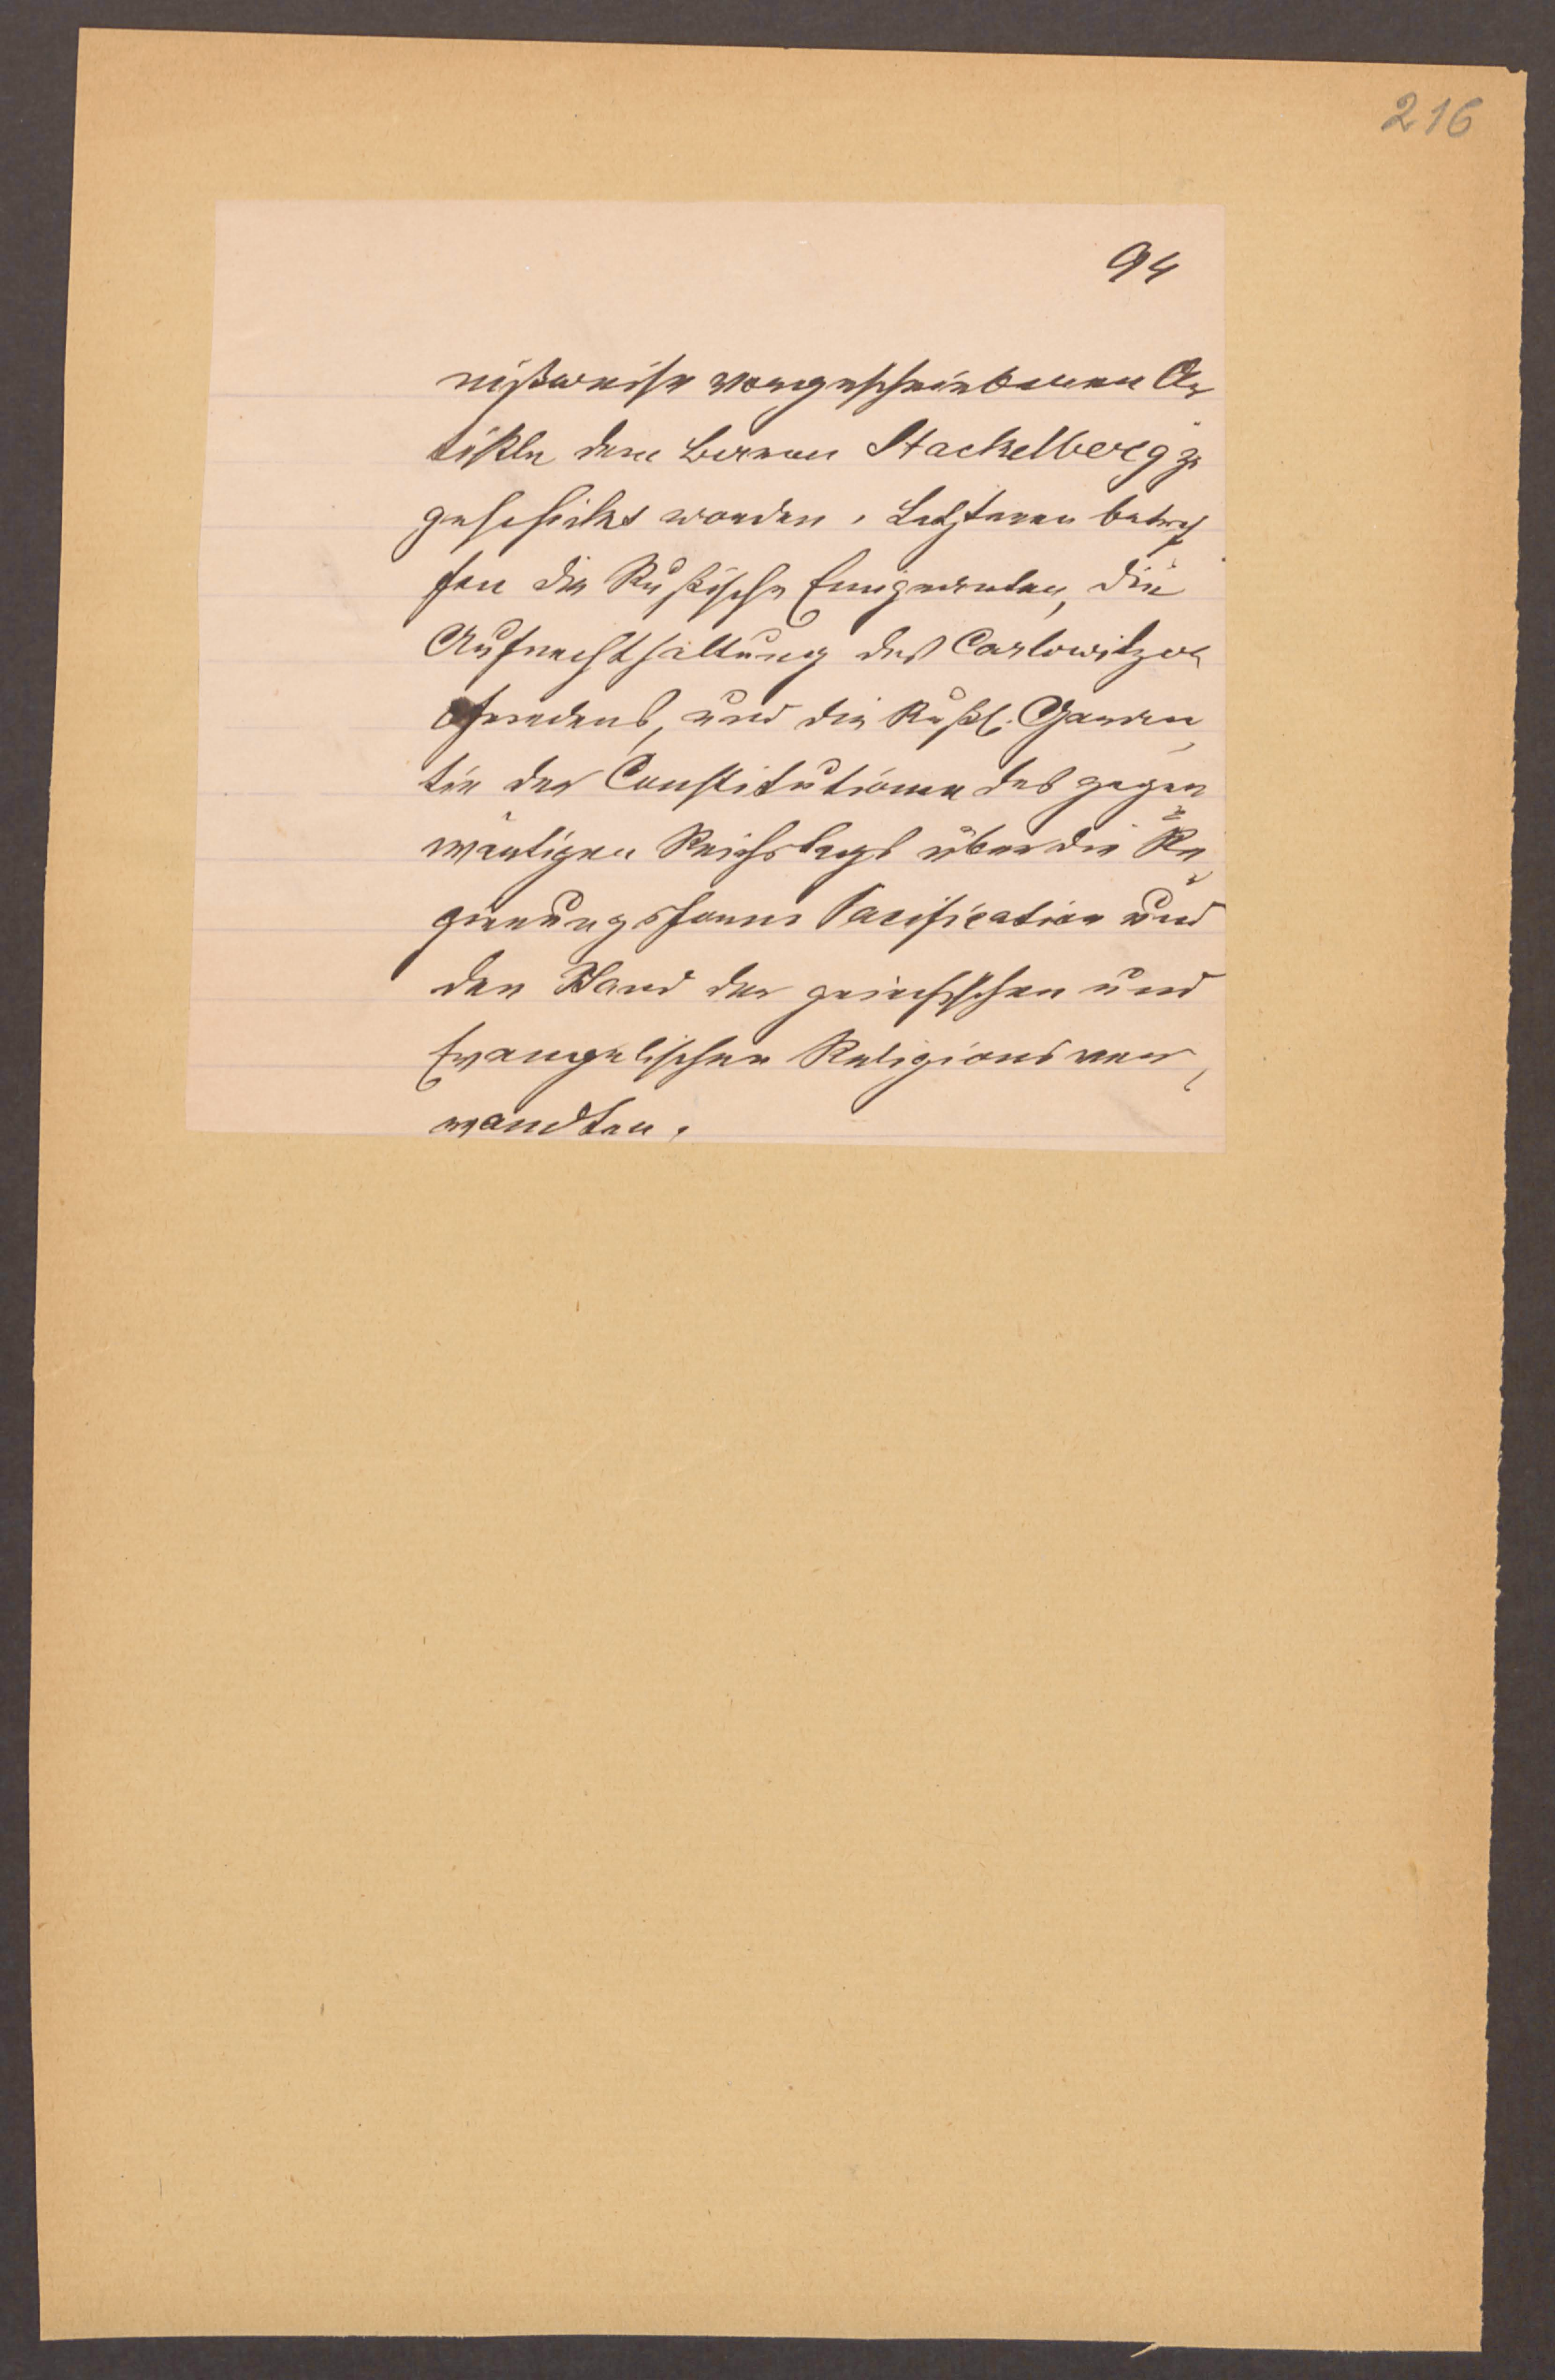 216
94
nißweise vorgeschriebenen Ar
tikle dem Baron Stackelberg zu
geschickt worden. Letzteren betref
fen die Rußische Emigranten, die
Aufrechthaltung des Carlowitzer
friedens, und die Rußl. Garan
tie der Constitutionen des gegen
wärtigen Reichstags über die Re
gierungsform Pacification und
den Stand der griechischen und
Evangelischen Religions ver
wandten.